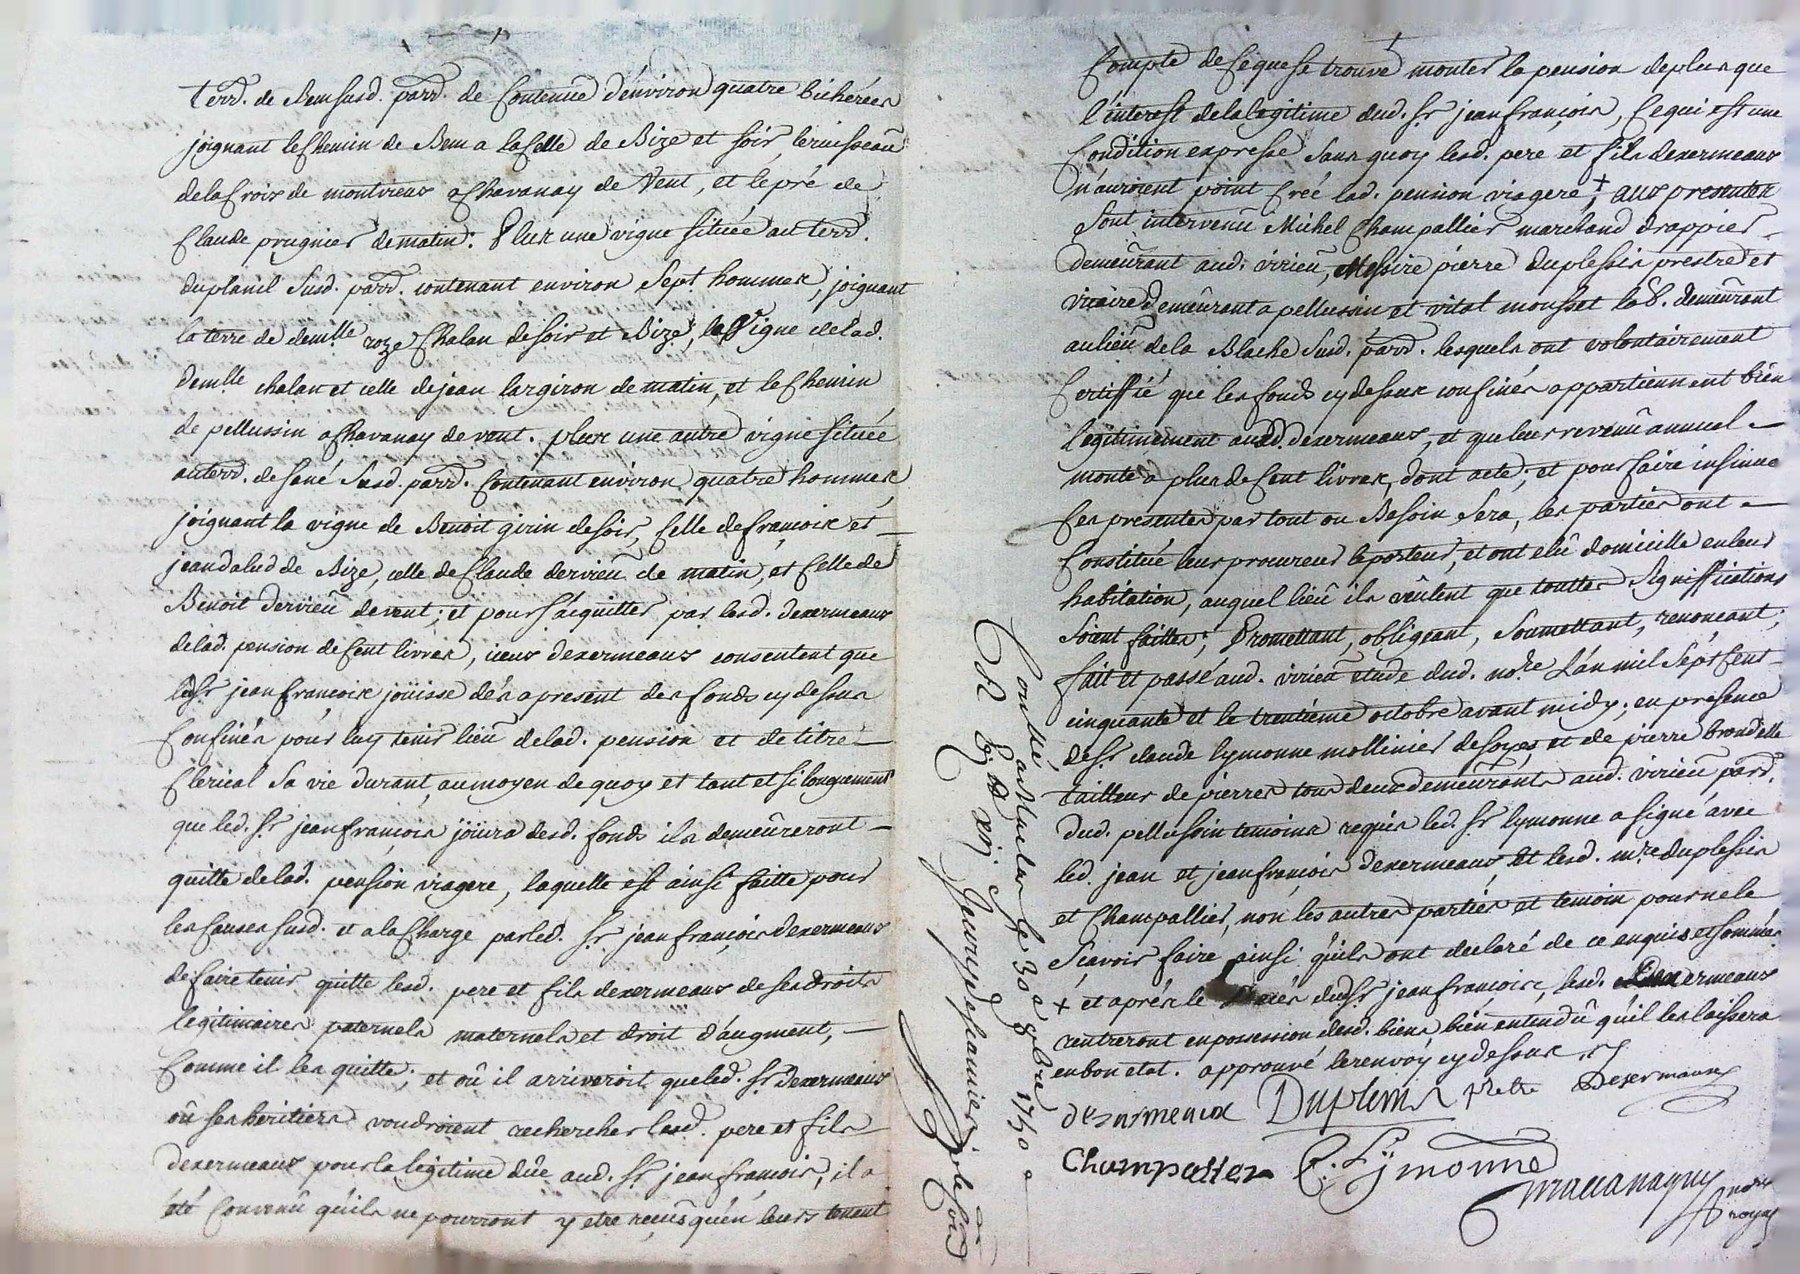 terr. de Bem susd. parr. de Contenue d'environ quatre bicherées
joignant le Chemin de Bem a la Celle de Bize et soir, le ruisseau
de la Croix de montvieux a Chavanay de Vent, et le pré de
Claude prugnier de matin. Plux une vigne située au terr.
du planil susd. parr. contenant environ Sept hommex, joignant
la terre de demlle roze Chalan de soir et Bize, la Vigne de lad.
demlle chalan et celle de jean largiron de matin, et le Chemin
de pellussin a Chavanay de vent. plux une autre vigne située
au terr. de susd. parr. Contenant environ quatre hommex
joignant la vigne de Benoit girin de soir, Celle de françoix et
jean de Bize, celle de Claude dervieu de matin, et Celle de
Benoit dervieu de vent; et pour s'aquitter par lesd. dexermeaux
de lad. pension de Cent livres, iceux dexermeaux consentent que
led. sr jean françoix joüisse dés a present des fonds cy dessus
Confinés pour luy tenir lieu de lad. pension et de titre
Clerical Sa vie durant, au moyen de quoy et tant et si longuement
que led. sr jean françois joüira desd. fonds ils demeureront
quitte de lad. pension viagere, laquelle est ainsi faitte pour
les Causes susd. et a la Charge par led. sr jean françois dexermeaux
de faire tenir quitte lesd. pere et fils dexermeaux de ses droits
legitimaires paternels maternels et droit d'augment,
Comme il les quitte; et où il arriveroit que led. sr dexermeaux
où ses heritiers voudroient rechercher lesd. pere et fils
dexermeaux pour la legitime düe aud. sr jean françois, il a
été Convenû qu'ils ne pourront y etre reçus qu'en leurs tenant
Compte de Ce que se trouve monter la pension de plus que
l'interest de la legitime dud. sr jean françois, Ce qui est une
Condition expresse sans quoy lesd. pere et fils dexermeaux
n'auroient point Creé lad. pension viagere, + aux presentes
Sont intervenu Michel Champallier marchand drappier
demeurant aud. virieu, Messire pierre duplessis prestre et
vicaire demeurant a pellussin et vital mousset lab. demeurant
au lieu de la Blache susd. parr. lesquels ont volontairement
Certiffié que les fonds cy dessus confinés appartiennent bien
legitimement auxd. dexermeaux, et que leur revenu annuel
monte a plus de Cent livres, dont acte; et pour faire insinue
Ces presentes par tout ou Besoin Sera, les parties ont
Constitué leur procureur le porteur, et ont elû domicille en leur
habitation, auquel lieu ils veulent que touttes Signiffications
Soient faittes; Promettant, obligeant, Soumettant, renonceant;
fait et passé aud. virieu etude dud. nore L'an mil Sept Cent
cinquante et le trentieme octobre avant midy; en presence
de sr claude lymonne mollinier de soyes et de pierre brondelle
tailleur de pierres tous deux demeurants aud. virieu parr.
dud. pellussin temoins requis led. sr lymonne a signé avec
led. jean et jean françois dexermeaux, et lesd. mre duplessis
et Champallier, non les autres parties et temoin pour ne le
sçavoir faire ainsi qu'ils ont declaré de ce enquis et sommés
+ et aprés le decés dud. sr jean françoix, lesd. dexermeaux
rentreront en possession desd. biens, bien entendû qu'il les laissera
en bon etat. approuvé le renvoy cy dessus
desarmeaux Duplessis Pretre Dexermeaux
Champallier C. Lÿmonne